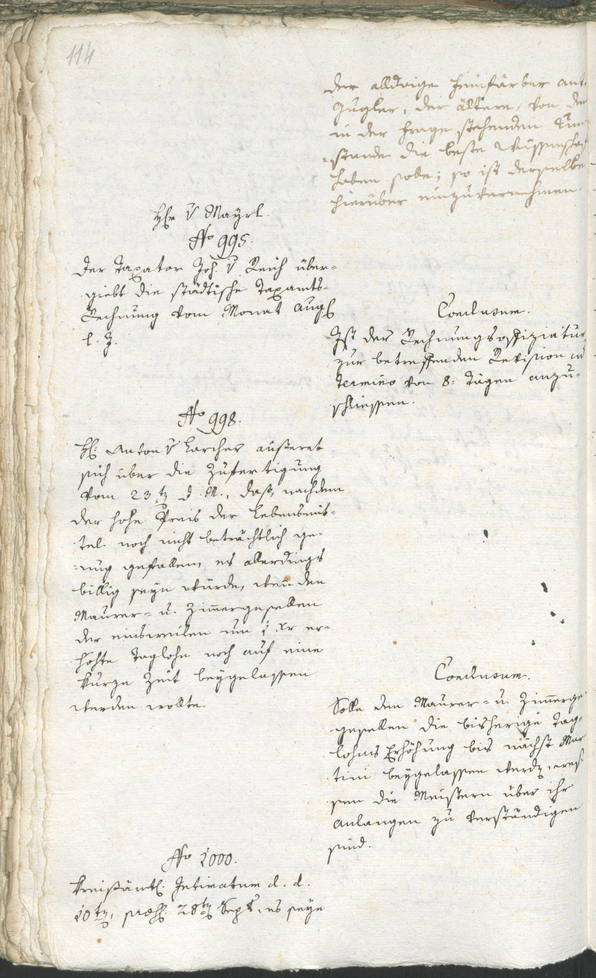 114
der alldoige Huufärber ant.
Zugler, der ältere, von den
in der Frage stehenden Um-
ständen die beste Wissenschaft
haben solle; so ist derselbe
hierüber einzuvernehmen.
H: v Mayrl.
No 995.
Der Taxator Joh. v Reich über-
giebt die städtische Taxamts-
Rechnung vom Monat Aug
l. J.
Conclusum.
Ist der Rechnungsoffiziatur
zur betreffenden Revision in
Termino von 8: Tägen anzu-
schliessen.
No 998.
H: Anton v Larcher äußeret
sich über die Zufertigung
vom 23 d. M., daß, nachdem
der hohe Preis der Lebensmit-
tel noch nicht beträchtlich ge-
nug gefallen, es allerdings
billig seyn würde, wenn den
Maurer- u. Zimmergesellen
der einsweilen um xr er-
höhte Taglohn noch auf eine
kurze Zeit beygelassen
werden wollte.
Conclusum.
Solle den Maurer- u. Zimmerge-
gesellen die bisherige Tag-
lohns Erhöhung bis nächst Mar-
tini beygelassen werden,
sen die Meistern über ihr
Anlangen zu verständigen
sind.
No 1000.
Kreisämtl. Intimatum d. d.
10 28 Sept, es seyn